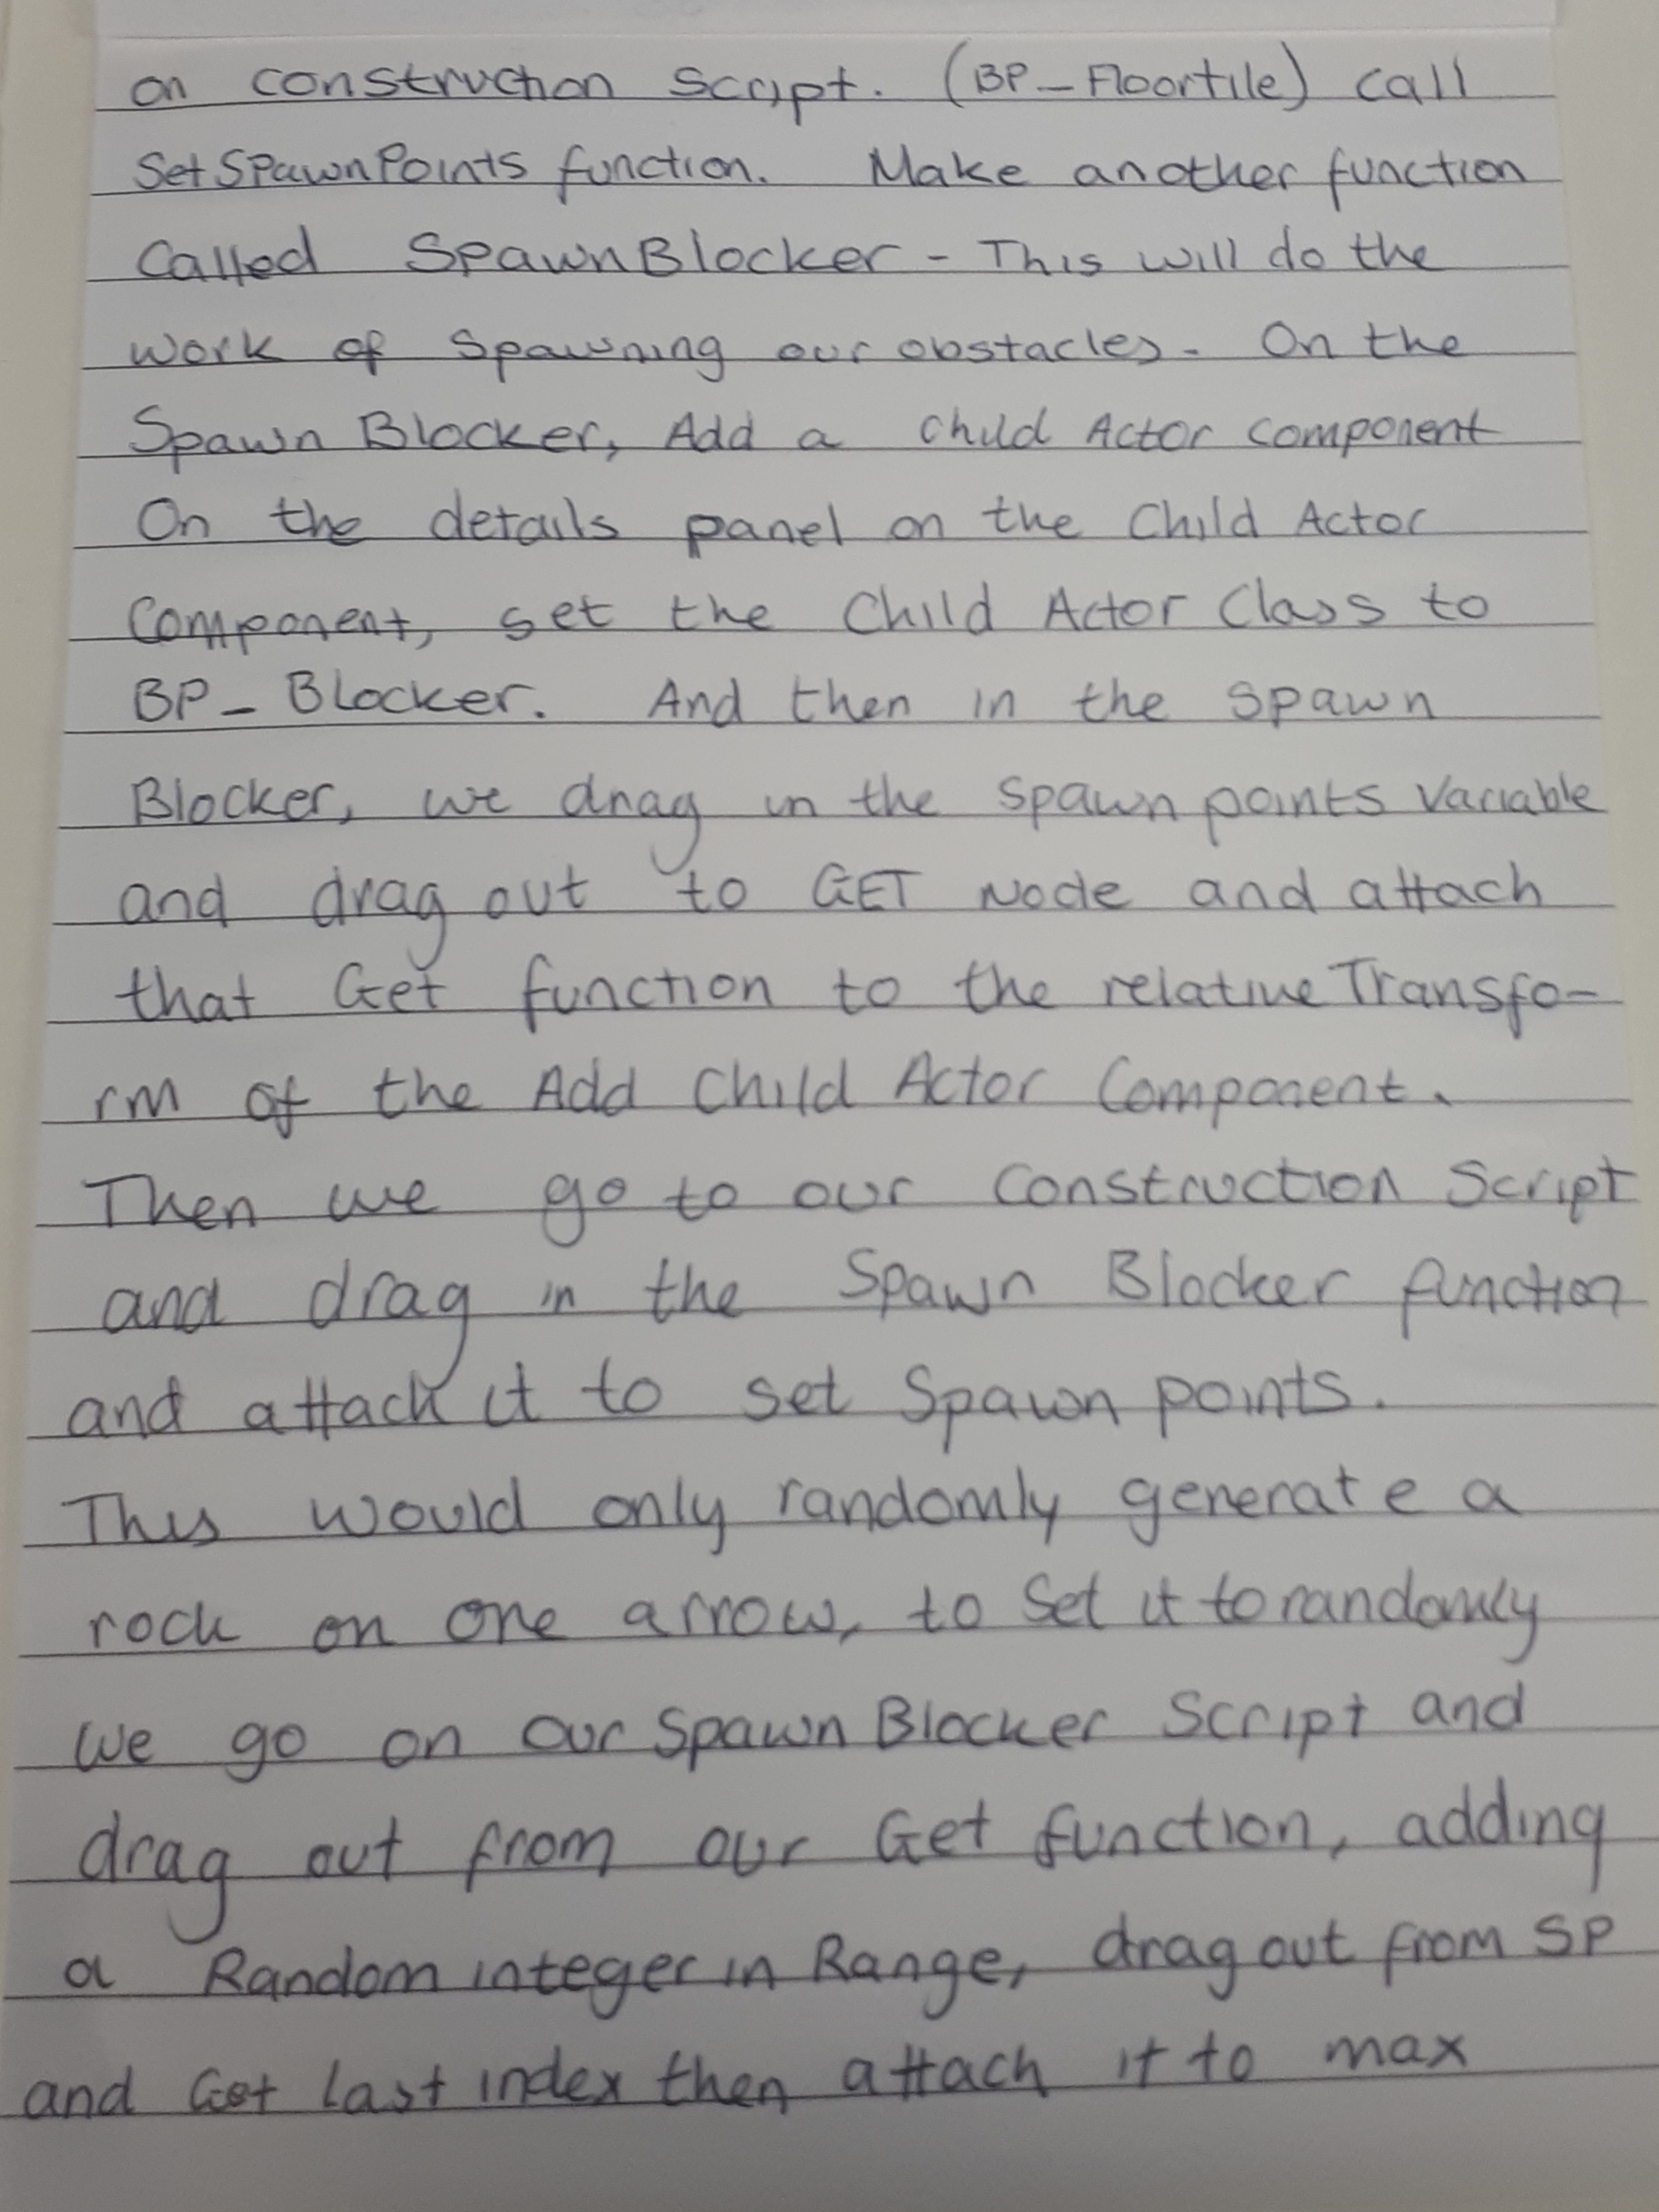 on construction script. (BP_Floortile) call
SetSpawnPoints function. Make another function
Called SpawnBlocker - This will do the
work of spawning our obstacles. On the
Spawn Blocker, Add a child Actor component
On the details panel on the Child Actor
Component, set the Child Actor Class to
BP_Blocker. And then in the spawn
Blocker, we drag in the spawn points variable
and drag out to GET Node and attach
that Get function to the relative Transfo-
rm of the Add Child Actor Component.
Then we go to our Construction Script
and drag in the Spawn Blocker function
and attach it to set Spawn points.
This would only randomly generate a
rock on one arrow, to set it to randomly
we go on our Spawn Blocker Script and
drag out from our Get function, adding
a Random integer in Range, drag out from SP
and Get last index then attach it to max